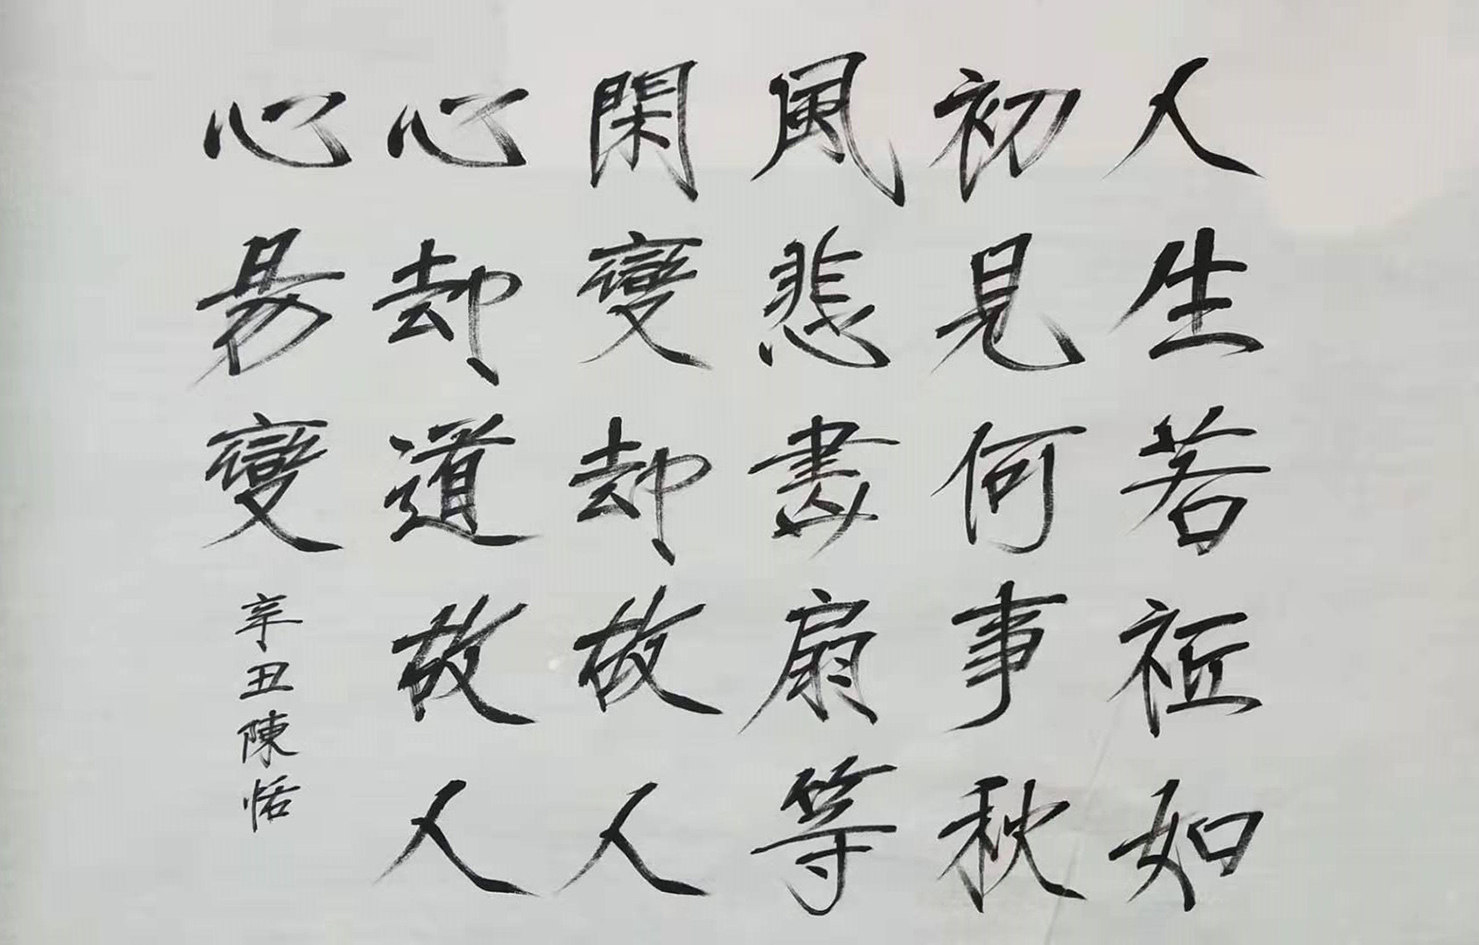 人生若祗如
初見何事秋
風悲畫扇等
閑變却故人
心却道故人
心易變
辛丑陳恬